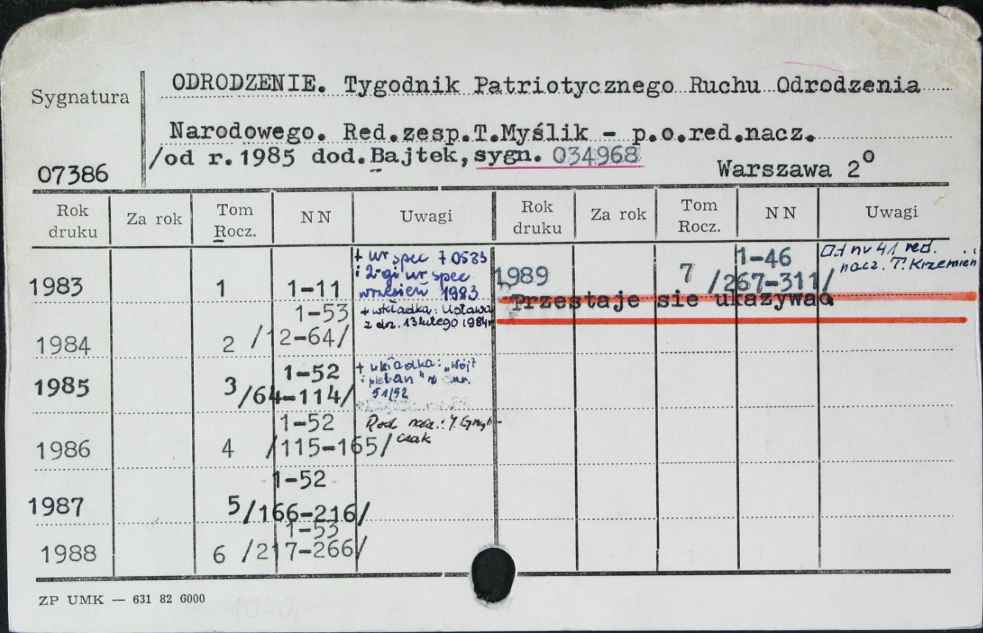 ODRODZENIE. Tygodnik Patriotycznego Ruchu Odrodzenia
Sygnatura
Narodowego. Red.zesp.T.Myślik - p.o.red.nacz.
/od r.1985 dod.Bajtek, sygn. 034968
07386 Warszawa 2°
Rok druku Za rok Tom Rocz. NN Uwagi Rok druku Za rok Tom Rocz. NN Uwagi
1983 1 1-11 + nr spec 70583 i 2-gi nr spec wrzesień 1983
1989 7 1-46 /267-311/ Od nr 41 red. nacz. T. Krzemień
Przestaje sie ukazywać
1984 2 1-53 /12-64/ + wkładka: Ustawa z dn. 13 lutego 1984r
1985 3 1-52 /64-114/ + wkładka: „Wójt i pleban" w nr 51/52
1986 4 1-52 /115-165/ Red. nacz.:
1987 5 1-52 /166-216/
1988 6 1-53 /217-266/
ZP UMK — 631 82 6000